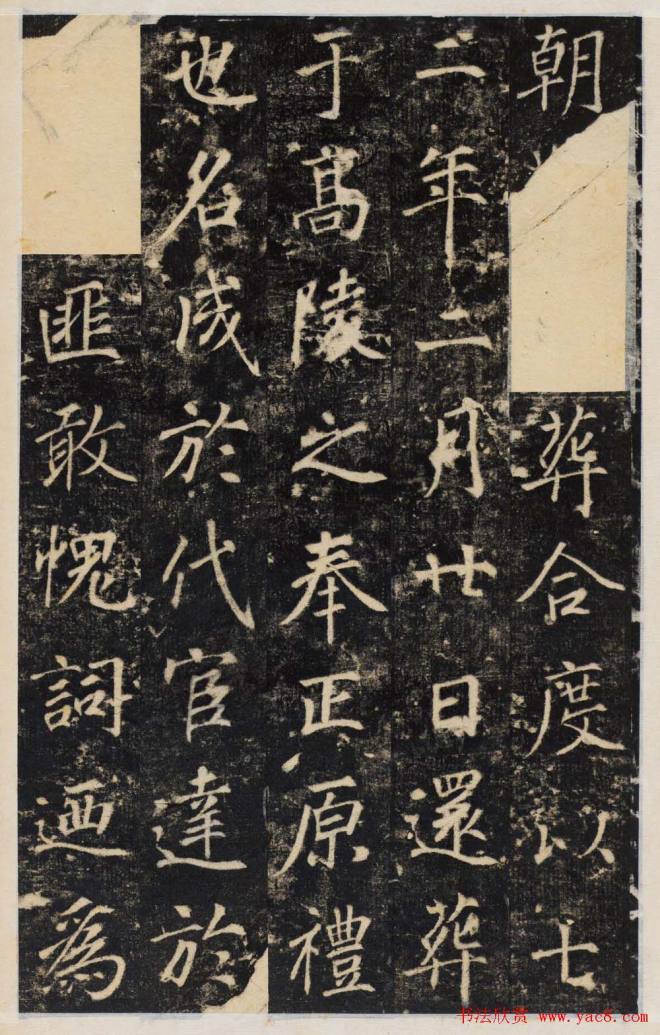 朝葬合度以七
二年二月廿日還葬
于髙陵之奉正原禮
也名成於代官達於
匪敢愧詞迺為
书法欣赏 www.yac8.com